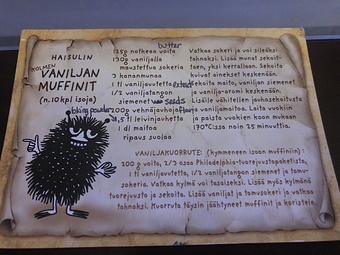 HAISULIN
KOLMEN
VANILJAN
MUFFINIT
(n. 10 kpl isoja)
butter
125g notkeaa voita
130g vaniljalla
maustettua sokeria
3 kananmunaa
1 tl vaniljauutetta extract
1/2 vaniljatangon
siemenet seeds
baking powder
1,5 tl leivinjauhetta
1 dl maitoa
ripaus suolaa
Vatkaa sokeri ja voi sileäksi
tahnaksi. Lisää munat sekoit-
taen, yksi kerrallaan. Sekoita
kuivat ainekset keskenään.
Sekoita maito, vaniljan siemenet
ja vanilja-aromi keskenään.
Lisäile vähitellen jauhosekoitusta
ja vaniljamaitoa. Laita vuokiin
ja paista vuokien koon mukaan
170°C:ssa noin 25 minuuttia.
VANILJAKUORRUTE: (kymmeneen isoon muffiniin):
200 g voita, 2/3 osaa Philadelphia-tuorejuustopaketista,
1 tl vaniljauutetta, 1/2 vaniljatangon siemenet ja tomu-
sokeria. Vatkaa kylmä voi tasaiseksi. Lisää myös kylmänä
tuorejuusto ja sekoita. Lisää vaniljat ja tomusokeri ja vatkaa
tahnaksi. Kuorruta täysin jäähtyneet muffinit ja koristele.